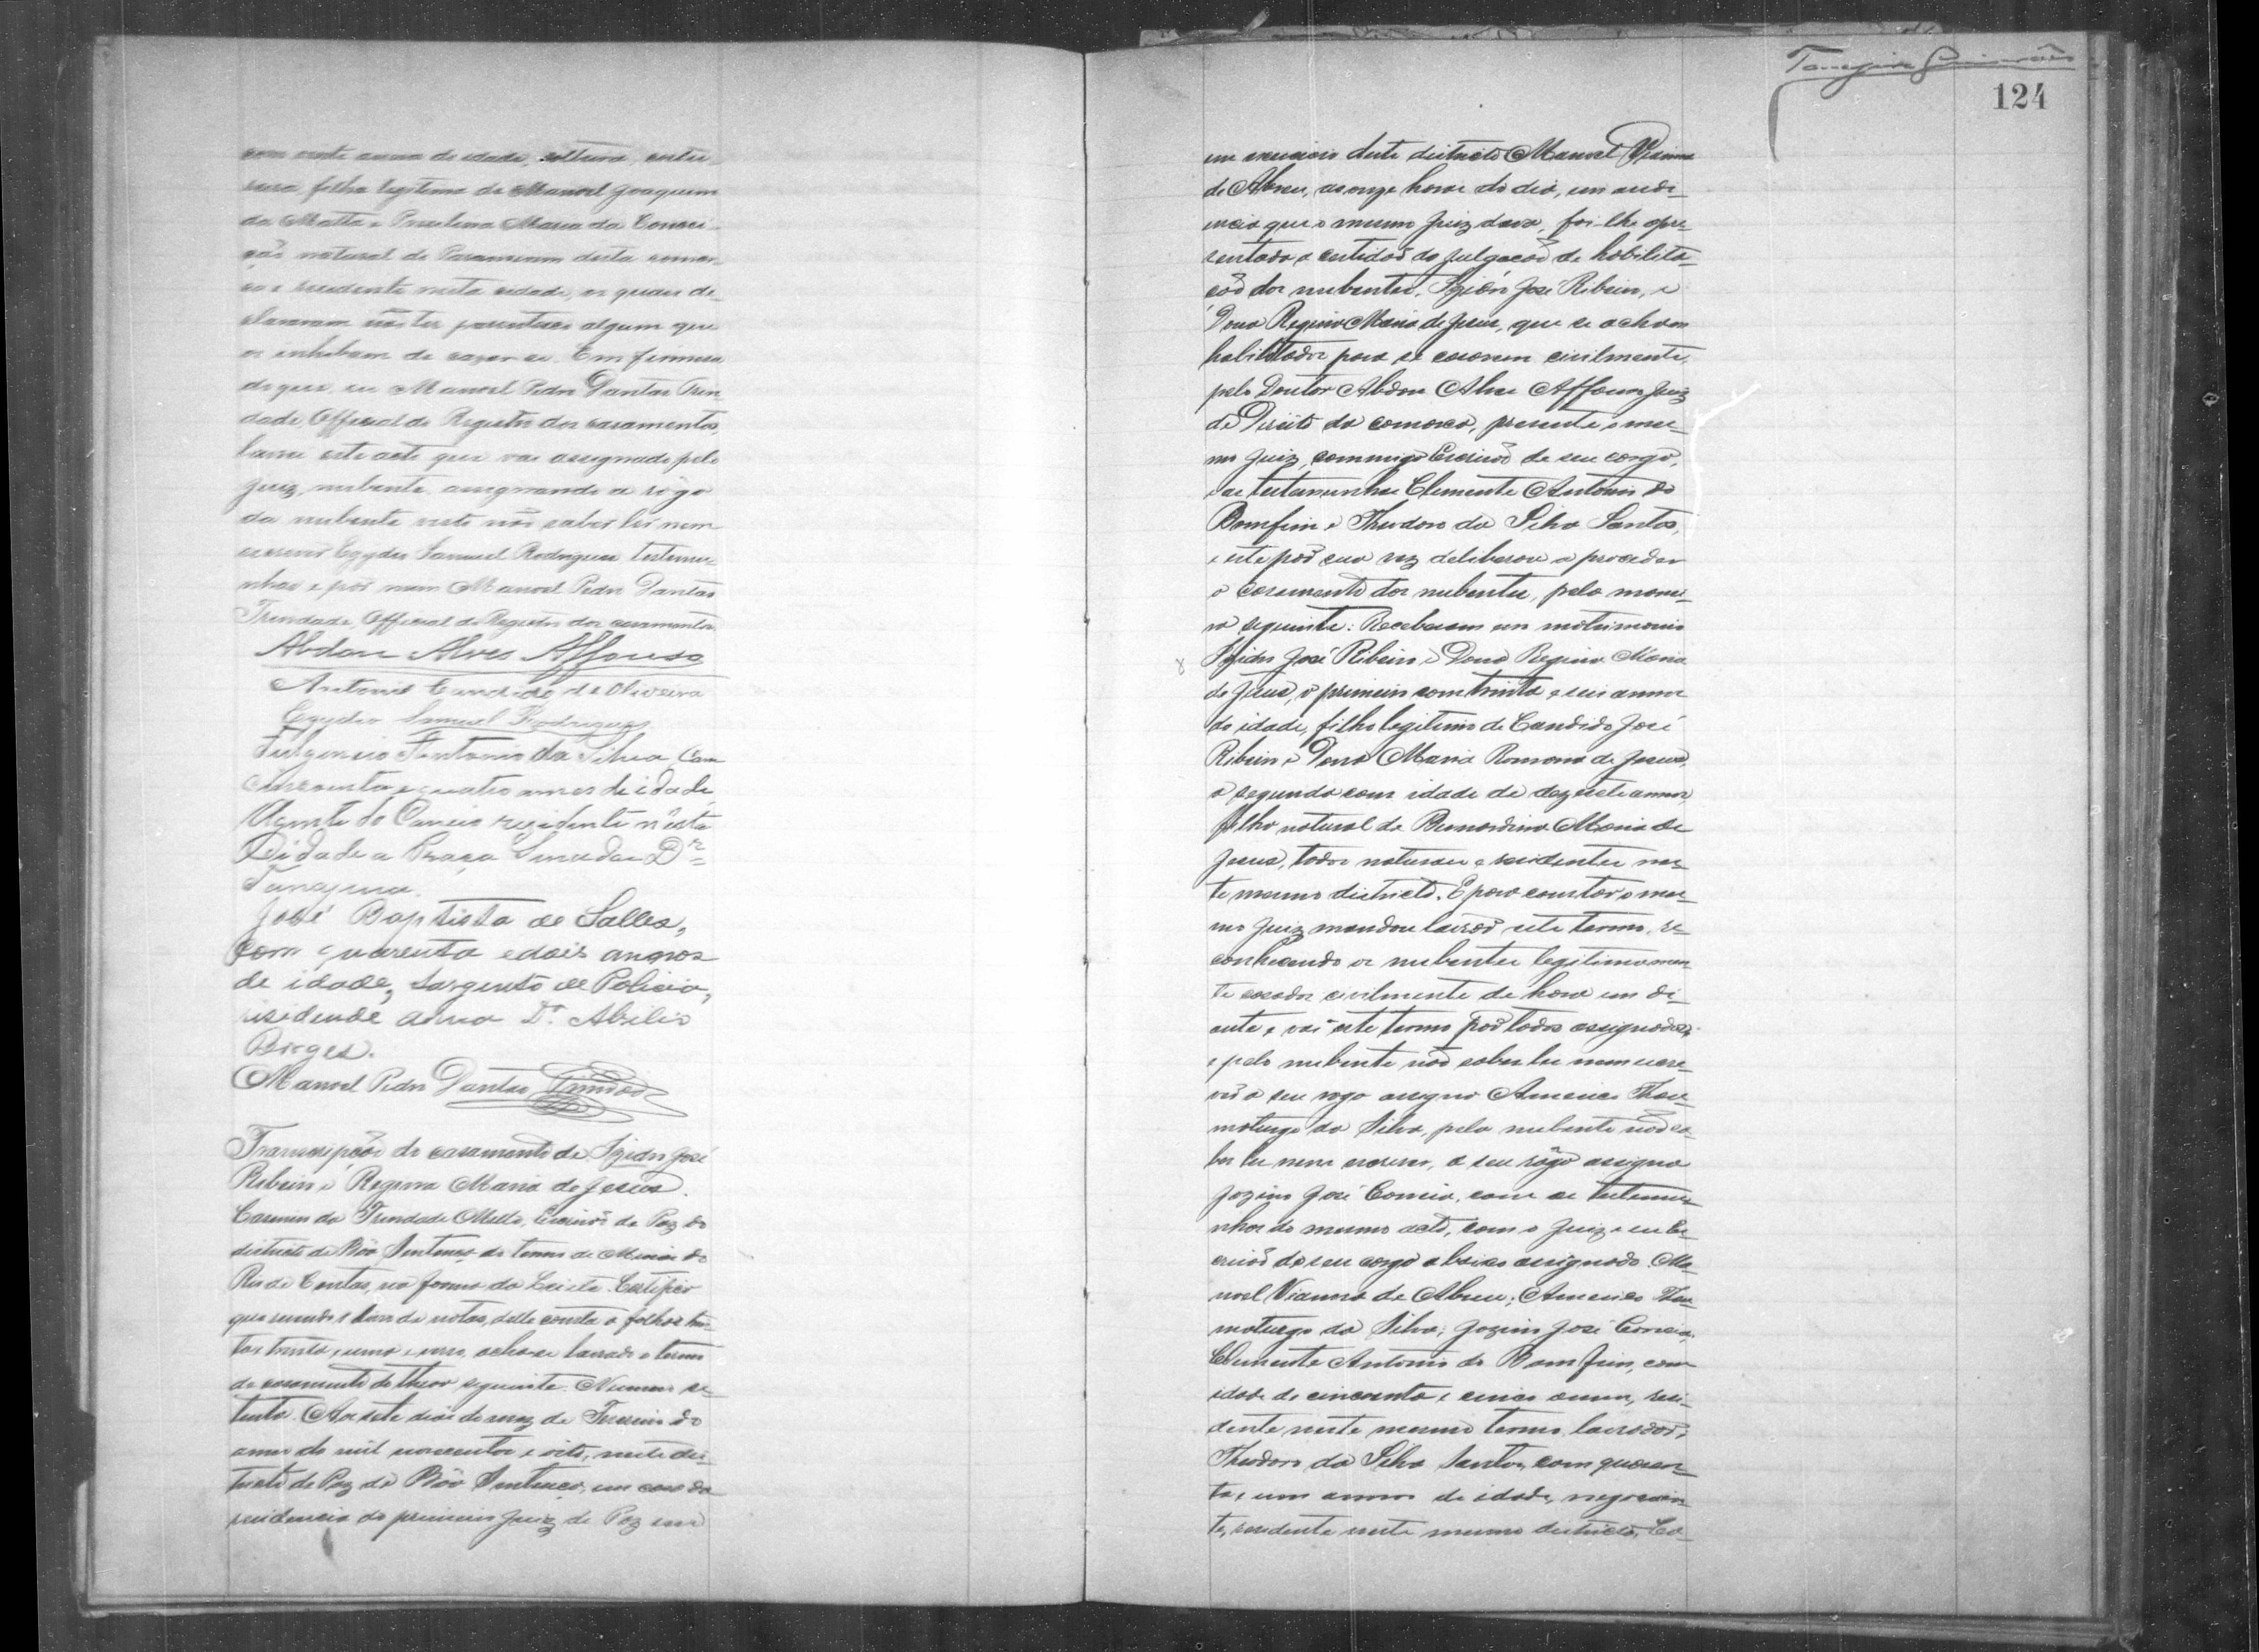 com vinte annos de idade, solteira, cotu
reira, filha legitima de Manoel Joaquim
da Matta e Maria da Concei
ção natural de Paramirim desta comar
ca e residente nesta cidade, os quais de
clararam não ter parentesco algum que
os enhibam de cazar-se. Em firmeza
do que, eu Manoel Pedro Dantas Trin
dade, Official do Registro dos casamentos,
lavrei este acto que vai assignado pelo
Juiz, nubente, assignando a rógo
da nubente visto não saber ler nem
escrever Egydio Samuel Rodrigues testemu
nhas e por mim Manoel Pedro Dantas
Trindade, Official do Registro dos casamentos
Abdon Alves Affonso
Antonio Candido de Oliveira
Egydio Samuel Rodrigues
Fulgencio Fontonio da Silva, Com
cincoenta e quatro annos de idade
Agente do Correio rezidente n'esta
Cidade a Praça Senador Dr
Tanajura.
José Baptista de Salles,
Com quarenta e dois annos
de idade, Sargento de Policia,
residende a rua Dr. Abilio
Borges.
Manoel Pedro Dantas Trindade
Transcripção do casamento de Izidro José
Ribeiro e Regina Maria de Jesus.
Casemiro da Trindade Mello, Escrivão de Paz do
districto de Bôa Sentença do termo de Minas do
Rio de Contas, na forma da Lei etc. Certifico
que revendo o livro de notas, delle consta a folhas trin
ta e uma e verso, acha-se lavrado o termo
de casamento do theor seguinte. Numero se
tenta. Aos sete dias do mez de Fevereiro do
anno de mil novecentos e oito, neste dis
tricto de Paz de Bôa Sentença, em casa da
residencia do primeiro Juiz de Paz em
Tanajura Guimarães
124
em exercicio deste districto Manoel Vianna
de Abreu, as onze horas do dia, em audi
encia que o mesmo Juiz dava, foi-lhe apre
sentada a certidão do julgação de habilita
ção dos nubentes, Izidro José Ribeiro, e
Dona Regina Maria de Jesus, que se acham
habilitados para se casarem civilmente,
pelo Doutor Abdon Alves Affonso Juiz
de Direito da comarca, presente o mes
mo Juiz, commigo Escrivão de seu cargo,
e as testemunhas Clemente Antonio do
Bomfim e Theodoro da Silva Santos,
e este por sua vez deliberou a proceder
o casamento dos nubentes, pela manei
ra seguinte: Receberam em matrimonio
Izidro José Ribeiro e Dona Regina Maria
de Jesus, o primeiro com trinta e seis annos
de idade, filho legitimo de Candido José
Ribeiro e Dona Maria Romana de Jesus,
a segunda com idade de dezesete annos
filha natural de Bernardina Maria de
Jesus, todos naturaes e residentes nes
te mesmo districto. E para constar o mes
mo Juiz mandou lavrar este termo, re
conhecendo os nubentes legitimamen
te casados civilmente de hora em di
ante e vai este termo por todos assignados
e pelo nubente não saber ler nem escre
ver a seu rogo assigna Americo Thau
maturgo da Silva, pela nubente não sa
ber ler nem escrever, a seu rôgo assigna
Jozino José Correia, com as testemu
nhas do mesmo acto, com o Juiz e eu Es
crivão de seu cargo abaixo assignado. Ma
noel Vianna de Abreu; Americo Thau
maturgo da Silva; Jozino José Correia;
Clemente Antonio do Bomfim, com
idade de cincoenta e cinco annos, resi
dente neste mesmo termo, lavrador;
Theodoro da Silva Santos, com quaren
ta e um annos de idade, negocian
te, residente neste mesmo districto, Ca